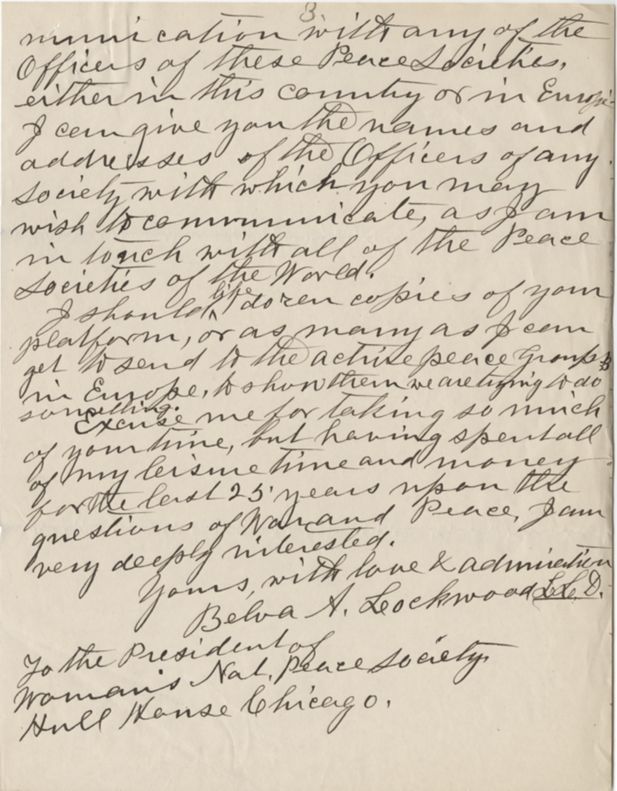 3.
munication with any of the
Officers of these Peace Societies,
either in this country or in Europe.
I can give you the names and
addresses of the Officers of any
society with which you may
wish to communicate, as I am
in touch with all of the Peace
Societies of the World.
I should like dozen copies of your
platform, or as many as I can
get to send to the active peace Groups
in Europe, to show them we are trying to do
something.
Excuse me for taking so much
of your time, but having spent all
of my leisure time and money
for the last 25 years upon the
questions of War and Peace, I am
very deeply interested.
Yours, with love & admiration
Belva A. Lockwood LL.D.
To the President of
Woman's Nat. Peace Society
Hull House Chicago.